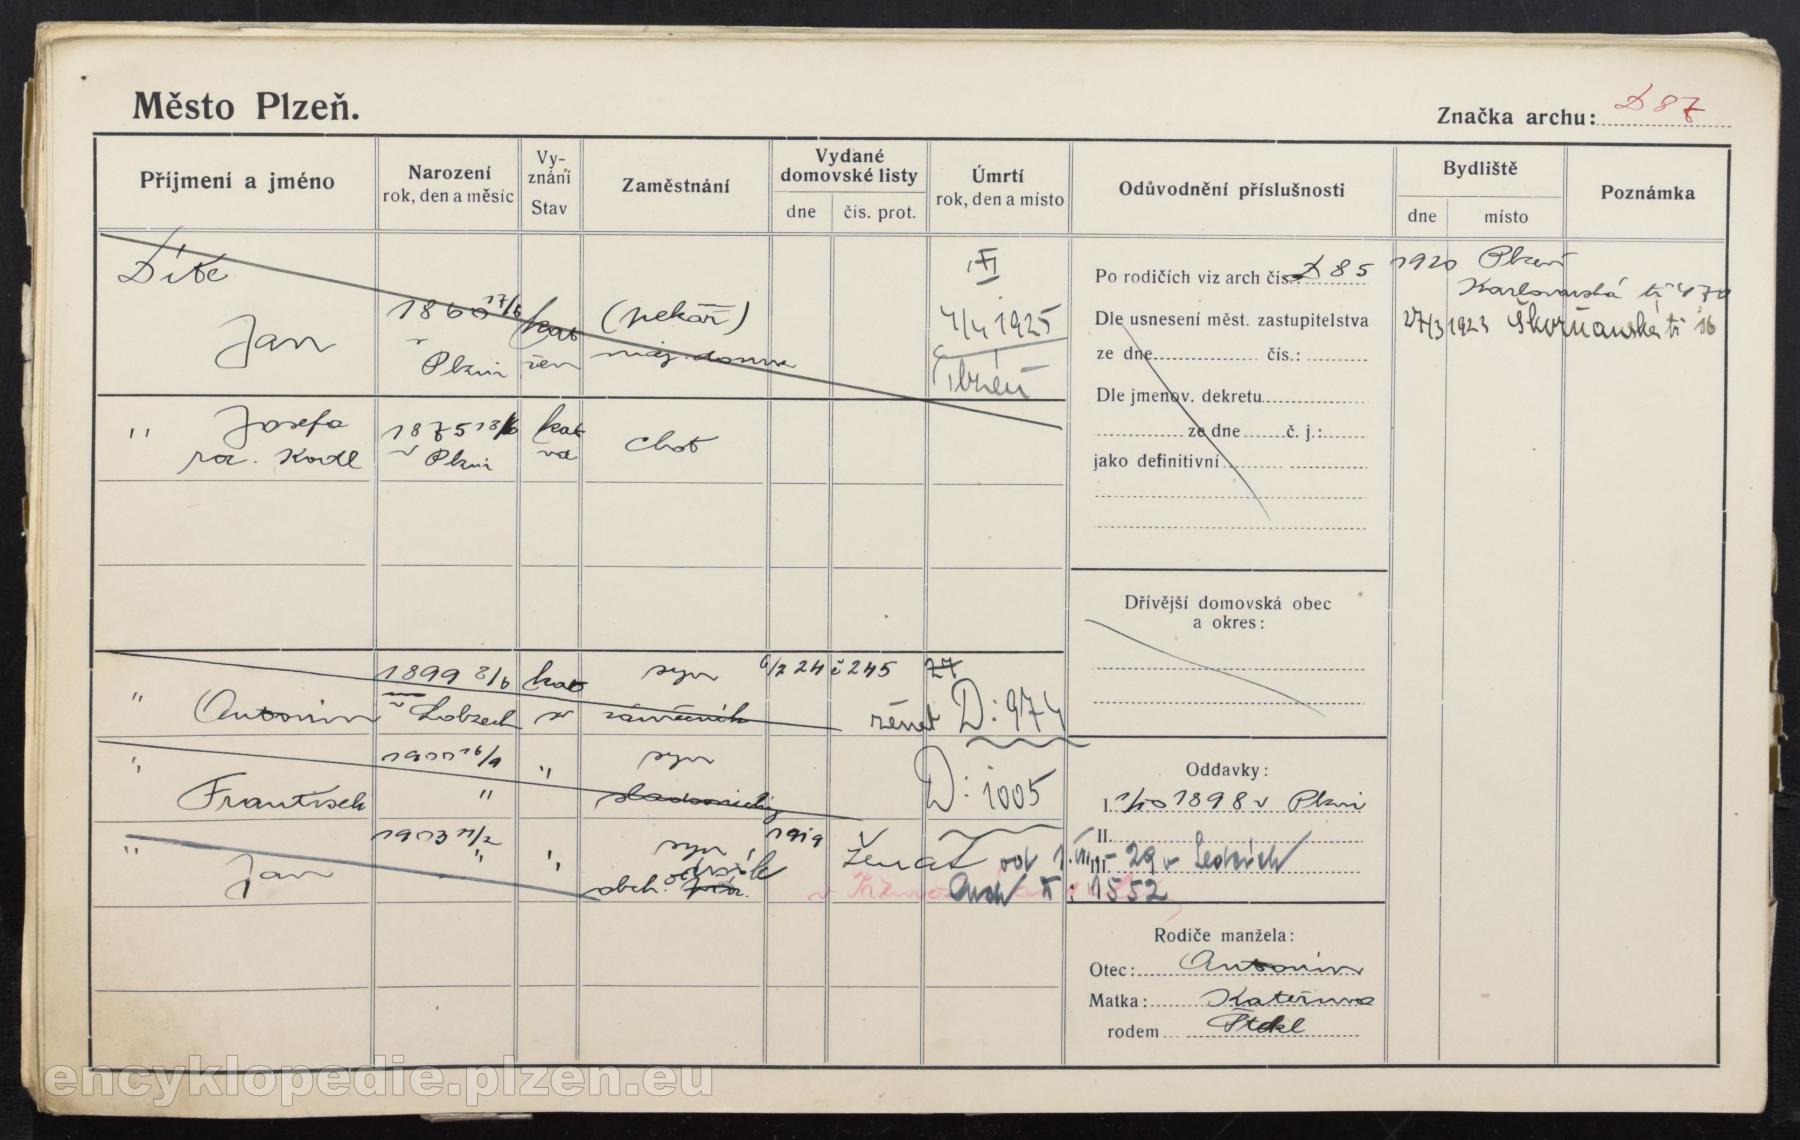 Město Plzeň.
Značka archu: D 87
Příjmení a jméno
Narození
rok, den a měsíc
Vy-
znání
Stav
Zaměstnání
Vydané
domovské listy
dne
čís. prot.
Úmrtí
rok, den a místo
Odůvodnění příslušnosti
Bydliště
dne
místo
Poznámka
Díte
Jan
1860 17/6
v Plzni
kat
žen
(pekař)
maj. domu
4/4 1925
Plzeň
" Josefa
roz.
1875 13/6
v Plzni
kat
va
choť
" Antonín
1899 2/6
v Lobzech
kat
sv
syn
zámečník
6/2 24 č 245
27
ženat D: 974
" František
1900 16/9
"
"
syn
D: 1005
" Jan
1903 11/2
"
"
syn
obch.
1919
ženat od 1. - 29 v
Arch 1552
Po rodičích viz arch čís. D 85
Dle usnesení měst. zastupitelstva
ze dne čís.:
Dle jmenov. dekretu
ze dne č. j.:
jako definitivní
Dřívější domovská obec
a okres:
Oddavky:
I. 1/10 1898 v Plzni
II.
III.
Rodiče manžela:
Otec: Antonín
Matka: Kateřina
rodem
1920 Plzeň
Karlovarská tř
27/3 1923 Škvrňanská tř 16
encyklopedie.plzen.eu